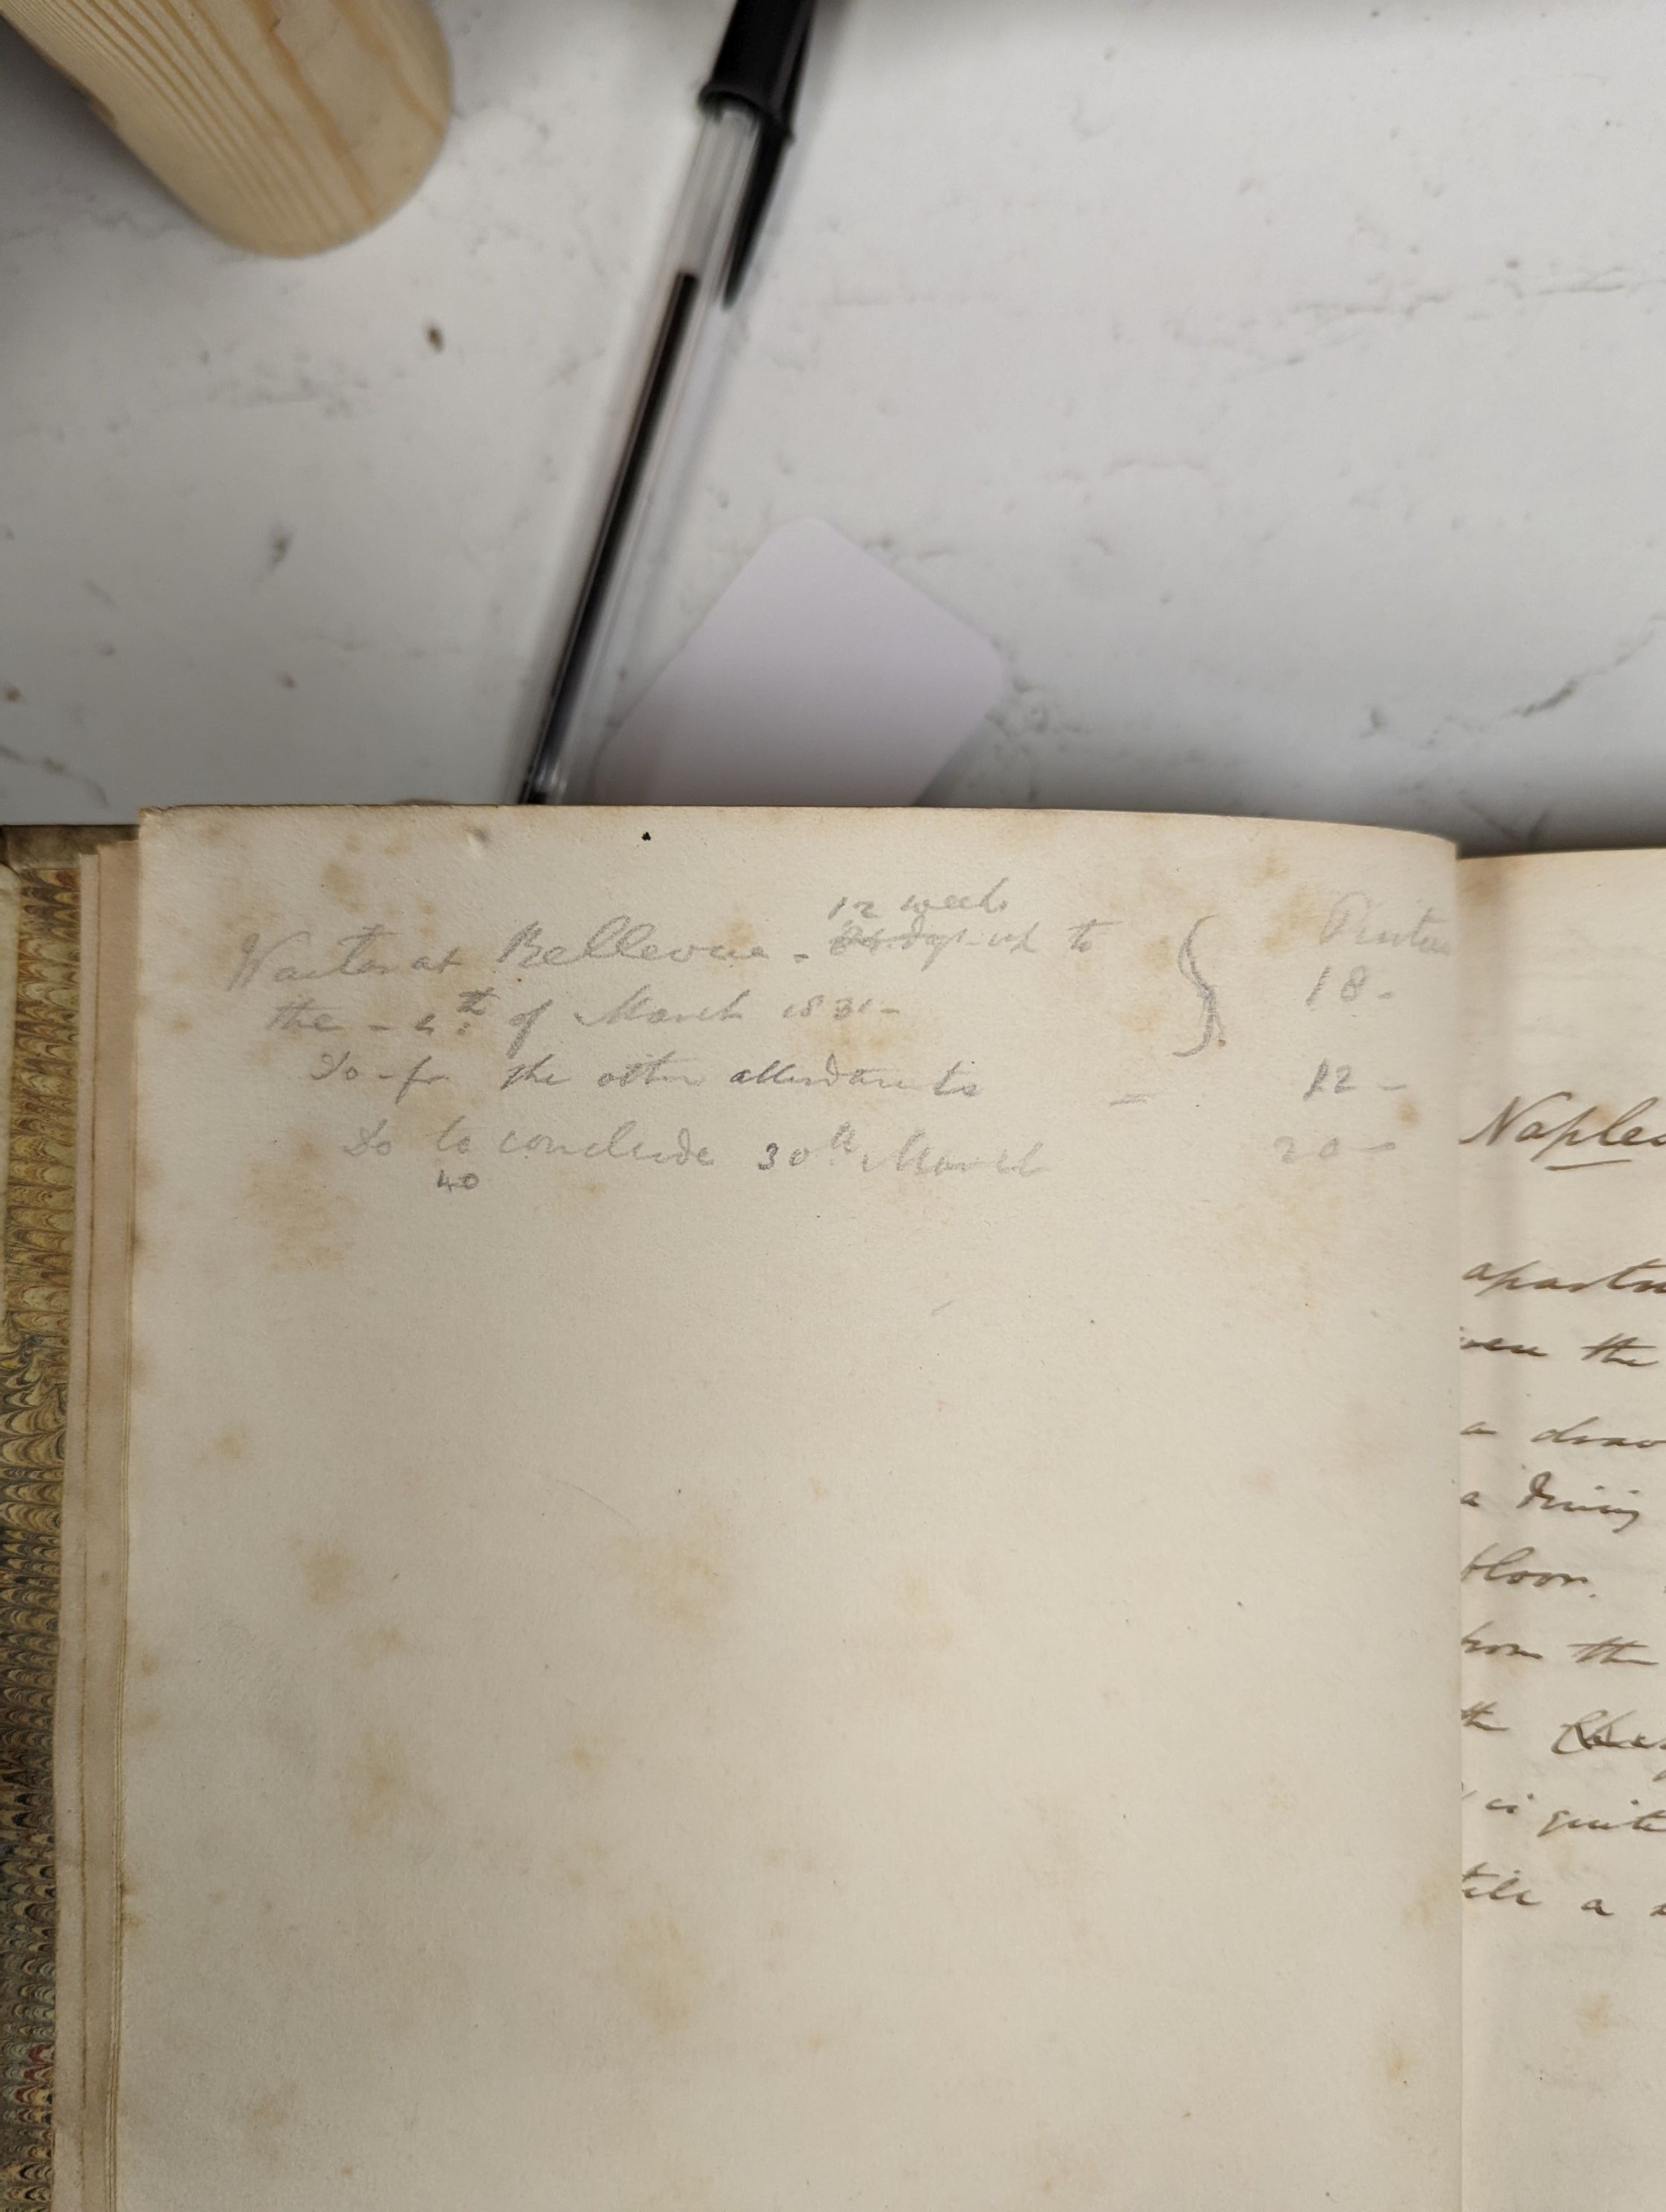 12 weeks
Waiter at Bellevue - 84 days up to
the - 4th of March 1831 -
18 -
Do - for the other attendants = 12 -
Do to conclude 30th March 20 -
40
Naples
apartm
the
a draw
a dining
floor.
from the
the
is quite
till a